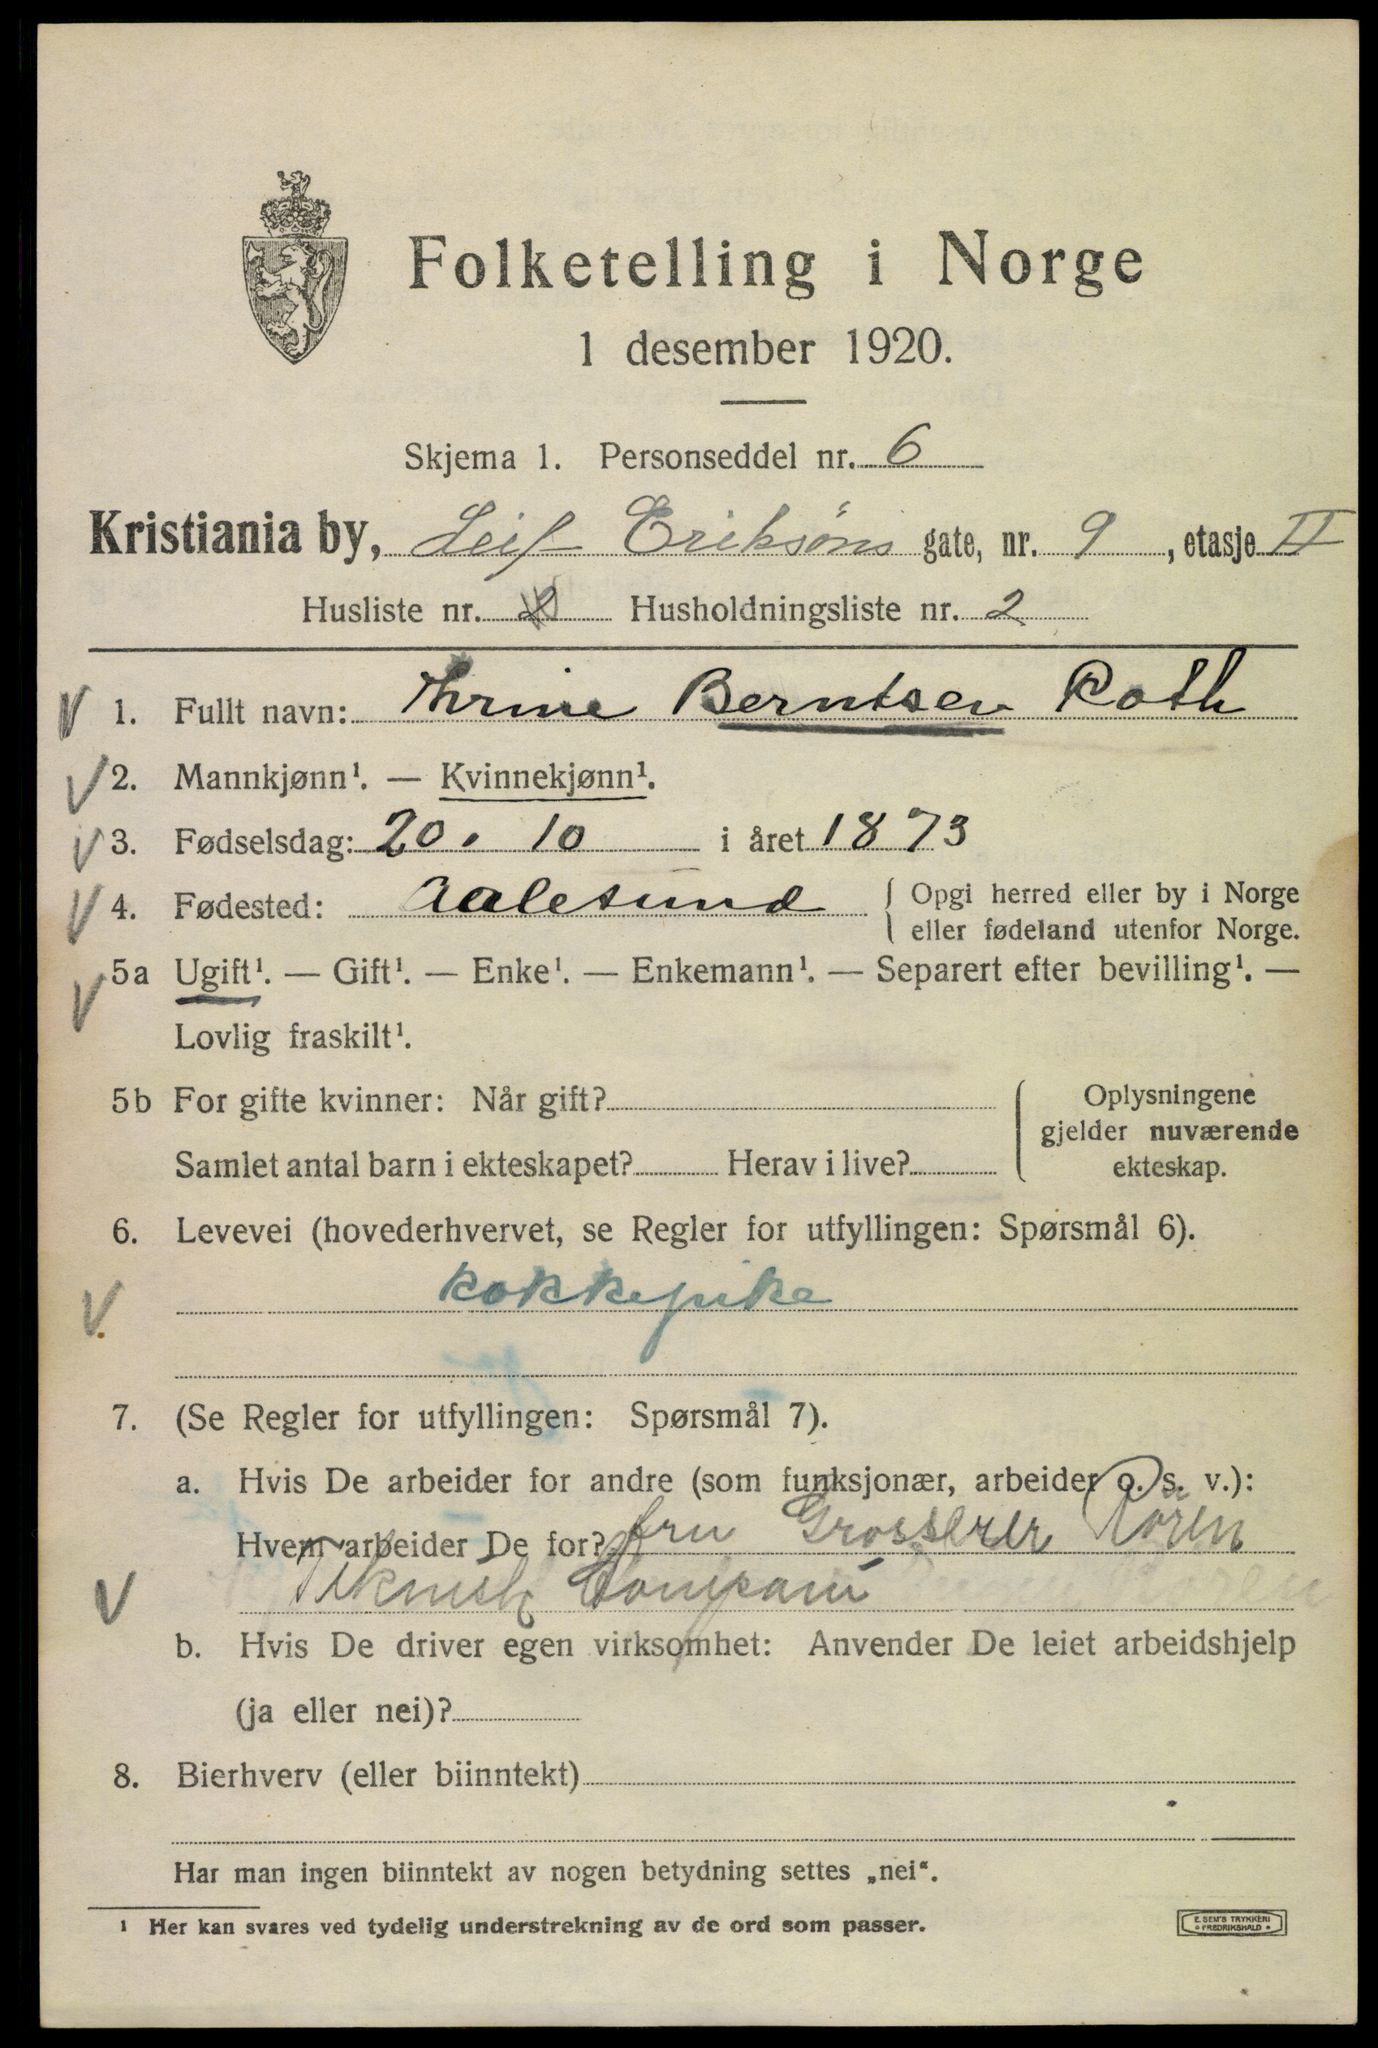 Folketelling i Norge
1 desember 1920.
Skjema 1. Personseddel nr. 6
Kristiania by, Leif Eriksöns gate, nr. 9, etasje II
Husliste nr. 2 Husholdningsliste nr. 2
1. Fullt navn: Thrine Berntsen Roth
2. Mannkjønn¹. — Kvinnekjønn¹.
3. Fødselsdag: 20. 10 i året 1873
4. Fødested: Aalesund { Opgi herred eller by i Norge
eller fødeland utenfor Norge.
5a Ugift¹. — Gift¹. — Enke¹. — Enkemann¹. — Separert efter bevilling¹. —
Lovlig fraskilt¹.
5b For gifte kvinner: Når gift? Oplysningene
gjelder nuværende
Samlet antal barn i ekteskapet? Herav i live? ekteskap.
6. Levevei (hovederhvervet, se Regler for utfyllingen: Spørsmål 6).
kokkepike
7. (Se Regler for utfyllingen: Spørsmål 7).
a. Hvis De arbeider for andre (som funksjonær, arbeider o. s. v.):
Hvem arbeider De for? fru Grosserer
Compani
b. Hvis De driver egen virksomhet: Anvender De leiet arbeidshjelp
(ja eller nei)?
8. Bierhverv (eller biinntekt)
Har man ingen biinntekt av nogen betydning settes „nei“.
¹ Her kan svares ved tydelig understrekning av de ord som passer.
E. SEM'S TRYKKERI
FREDRIKSHALD